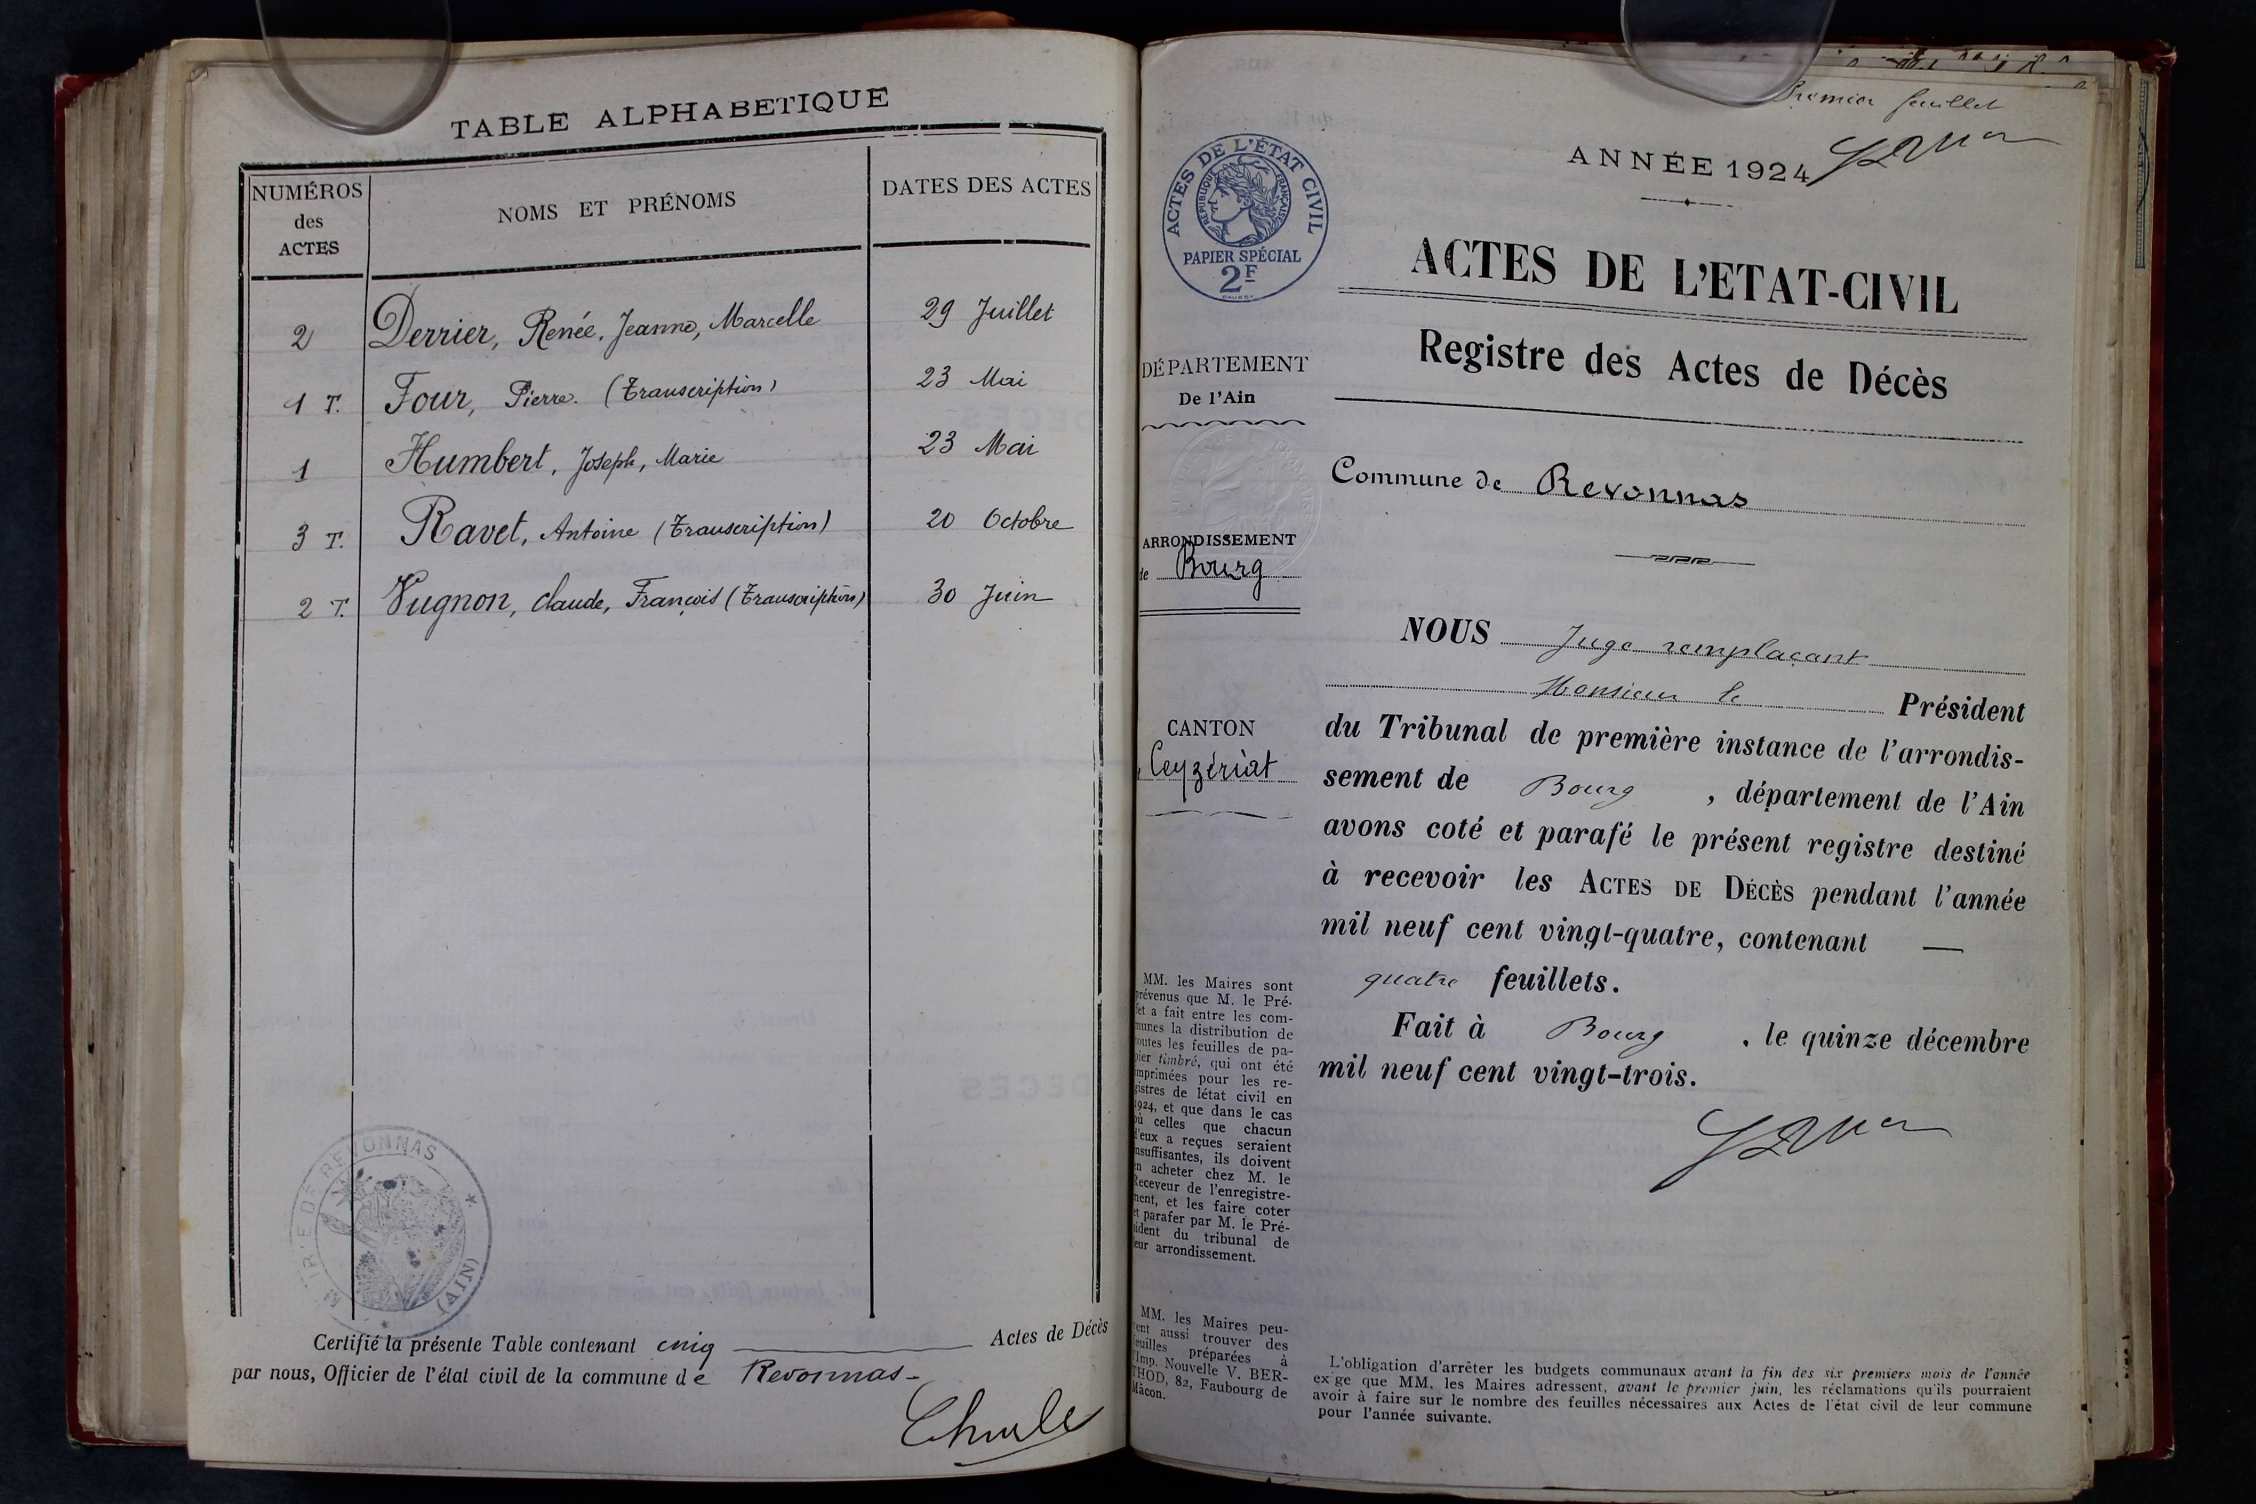 TABLE ALPHABETIQUE
NUMÉROS
des
ACTES
NOMS ET PRÉNOMS
DATES DES ACTES
2 Derrier, Renée, Jeanne, Marcelle 29 Juillet
1 T. Four, Pierre. (Transcription) 23 Mai
1 Humbert, Joseph, Marie 23 Mai
3 T. Ravet, Antoine (Transcription) 20 Octobre
2 T. Vugnon, Claude, François (Transcription) 30 Juin
MAIRIE DE REVONNAS
(AIN)
Certifié la présente Table contenant cinq Actes de Décès
par nous, Officier de l'état civil de la commune de Revonnas-
Premier feuillet
ANNÉE 1924
ACTES DE L'ÉTAT CIVIL
RÉPUBLIQUE FRANÇAISE
PAPIER SPÉCIAL
2F
ACTES DE L'ETAT-CIVIL
Registre des Actes de Décès
DÉPARTEMENT
De l'Ain
Commune de Revonnas
ARRONDISSEMENT
de Bourg
CANTON
Ceyzériat
NOUS Juge remplaçant
Monsieur le Président
du Tribunal de première instance de l'arrondis-
sement de Bourg, département de l'Ain
avons coté et parafé le présent registre destiné
à recevoir les ACTES DE DÉCÈS pendant l'année
mil neuf cent vingt-quatre, contenant —
quatre feuillets.
Fait à Bourg, le quinze décembre
mil neuf cent vingt-trois.
MM. les Maires sont
prévenus que M. le Pré-
fet a fait entre les com-
munes la distribution de
toutes les feuilles de pa-
pier timbré, qui ont été
imprimées pour les re-
gistres de létat civil en
1924, et que dans le cas
où celles que chacun
d'eux a reçues seraient
insuffisantes, ils doivent
en acheter chez M. le
Receveur de l'enregistre-
ment, et les faire coter
et parafer par M. le Pré-
sident du tribunal de
leur arrondissement.
MM. les Maires peu-
vent aussi trouver des
feuilles préparées à
l'Imp. Nouvelle V. BER-
THOD, 82, Faubourg de
Mâcon.
L'obligation d'arrêter les budgets communaux avant la fin des six premiers mois de l'année
exige que MM. les Maires adressent, avant le premier juin, les réclamations qu'ils pourraient
avoir à faire sur le nombre des feuilles nécessaires aux Actes de l'état civil de leur commune
pour l'année suivante.